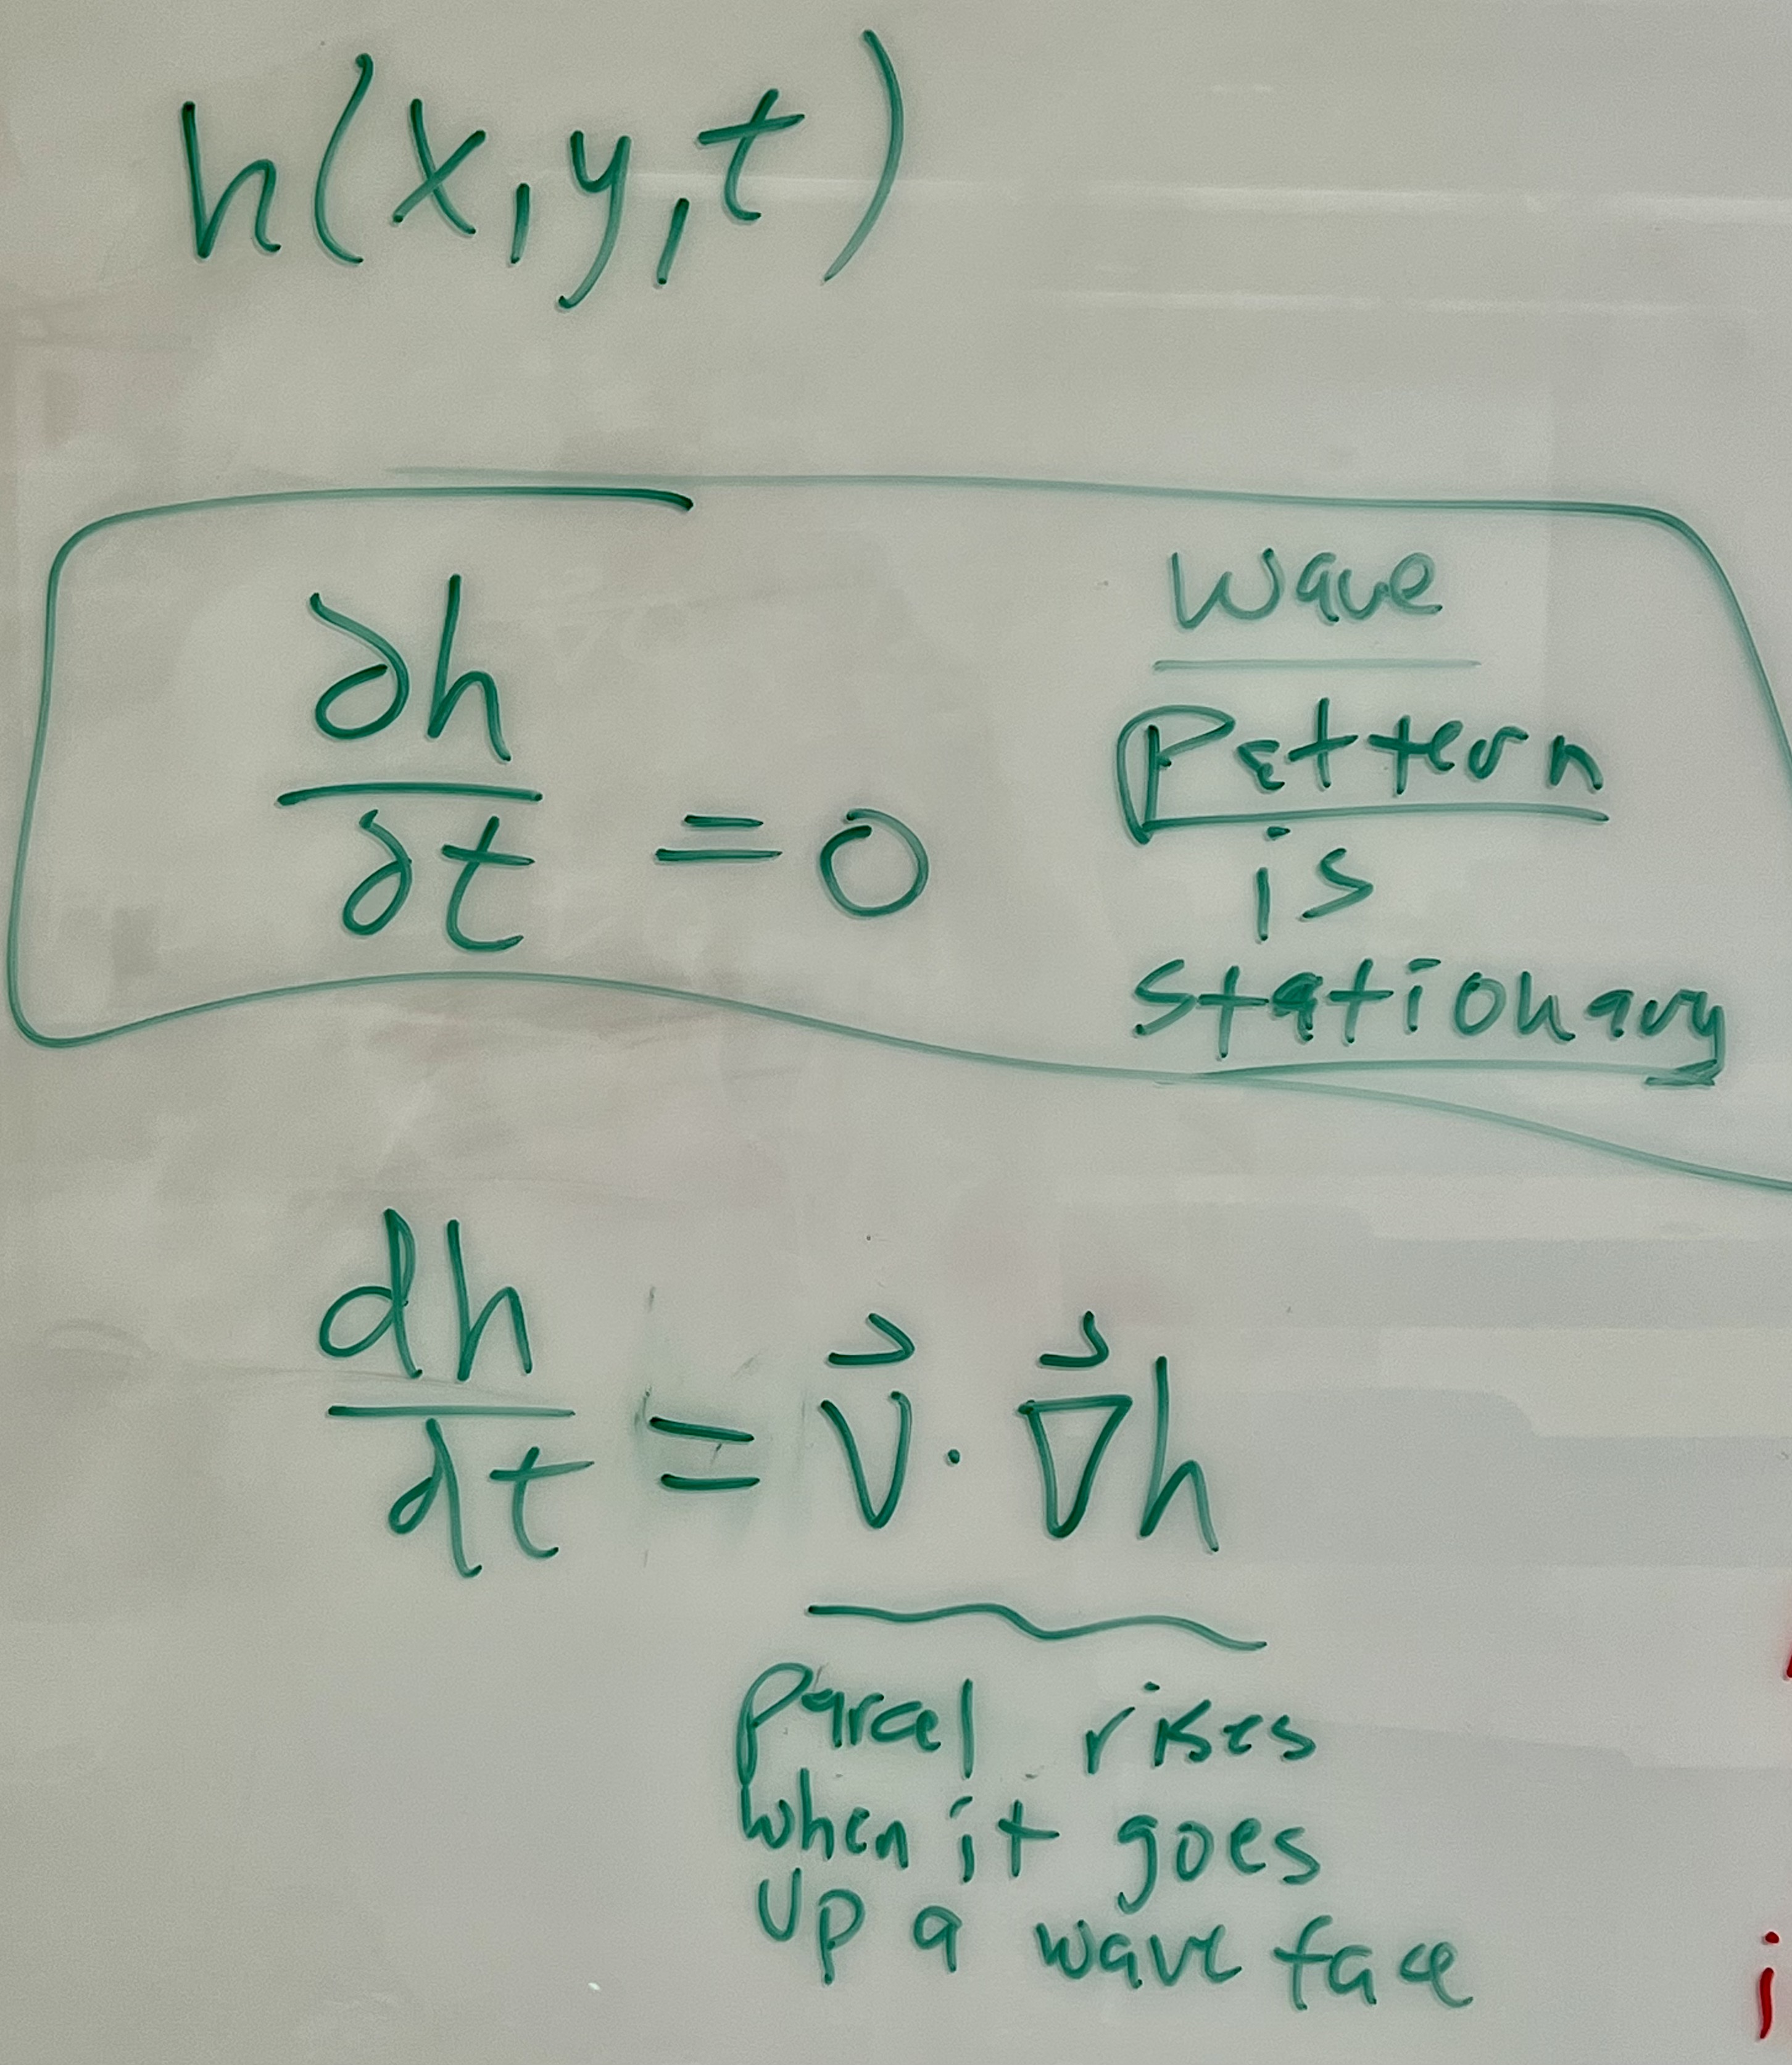 h(x,y,t)
∂h/∂t = 0
Wave
Pattern
is
stationary
dh/dt = V⃗ · ∇⃗h
parcel rises
when it goes
up a wave face
i